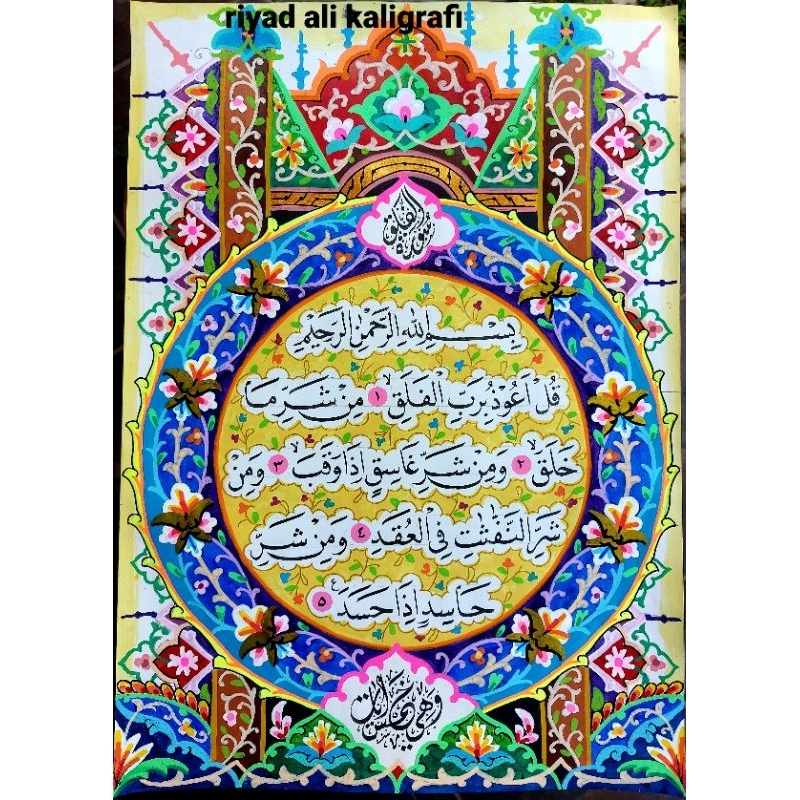 riyad ali kaligrafi
سورة الفلق
بِسْمِ اللهِ الرَّحْمٰنِ الرَّحِيْمِ
قُلْ اَعُوْذُ بِرَبِّ الْفَلَقِ ۱ مِنْ شَرِّ مَا
خَلَقَ ۲ وَمِنْ شَرِّ غَاسِقٍ اِذَا وَقَبَ ۳ وَمِنْ
شَرِّ النَّفّٰثٰتِ فِى الْعُقَدِ ٤ وَمِنْ شَرِّ
حَاسِدٍ اِذَا حَسَدَ ۵
وهي خمس آيات